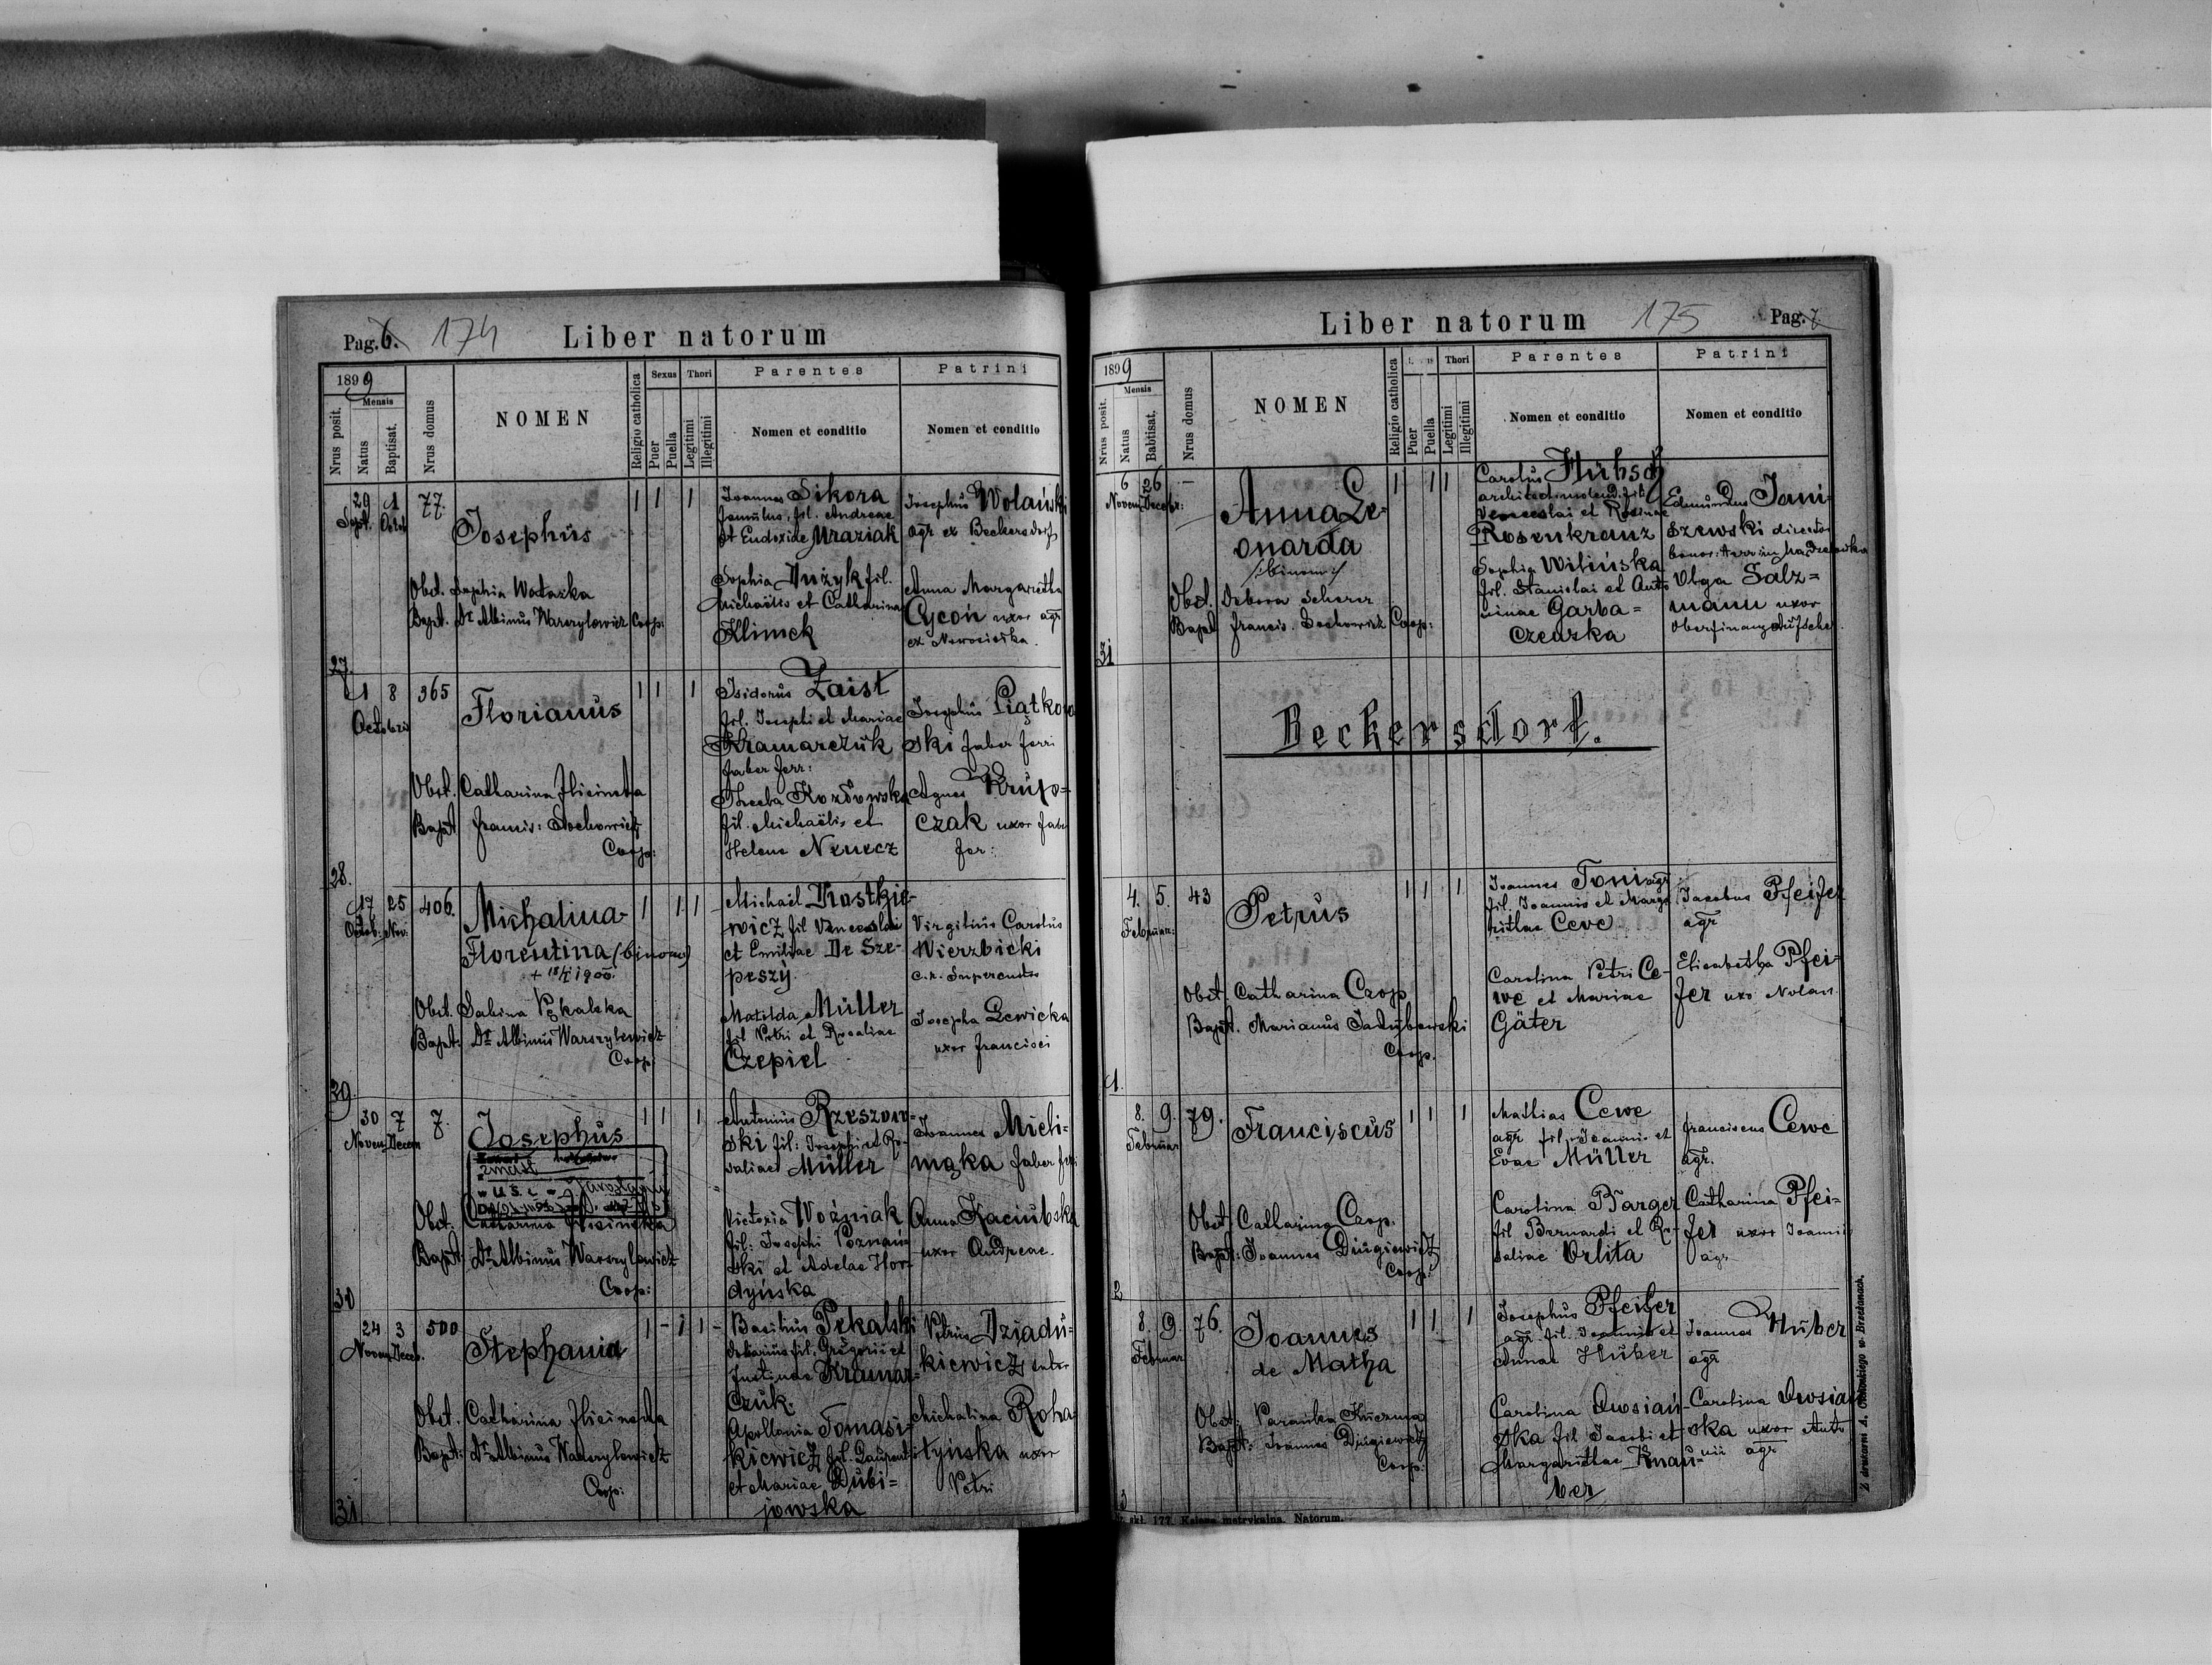 Pag. 6. 174 Liber natorum
1899
Nrus posit.
Mensis
Natus
Baptisat.
Nrus domus
NOMEN
Religio catholica
Sexus
Puer
Puella
Thori
Legitimi
Illegitimi
Parentes
Nomen et conditio
Patrini
Nomen et conditio
29 1 77.
Sept. Octob
Josephus
Obst. Sophia
Bapt. Dr Albinus Warszylewicz Coop:
Joannes Sikora
famulus, fil. Andreae
et Eudoxiae Mraziak
Sophia Dużyk fil.
Michaëlis et Catharina
Klimek
Josephus Wolański
agr ex Beckersdorf
Anna Margaretha
Cycoń uxor agr
ex Nowosiółka.
27.
1 8 365
Octobris
Florianus
Obst. Catharina
Bapt. Francis:
Coop:
Isidorus Zaist
fil. Josephi et Mariae
Kramarczuk
faber ferr:
Thecla Kozłowska
fil. Michaëlis et
Helena
Josephus Piątkow
ski faber ferri
Agnes Krupo-
czak uxor fab
fer:
28.
17 25 406.
Octob: Nov:
Michalina
Florentina (binom)
+ 18/1 1900.
Obst. Sabina Pękalska
Bapt: Dr Albinus Warszylewicz
Coop:
Michaël Drostkie-
wicz fil Venceslai
et Emiliae De Sze-
peszy.
Matilda Müller
fil Petri et Rosaliae
Czepiel
Virgilius Carolus
Wierzbicki
Josepha Lewicka
uxor Francisci
29.
30 7 7.
Novem Decem
Josephus
zmarł
Jarosław
Obst: Catharina
Bapt: Dr Albinus Warszylewicz
Coop:
Antonius Rzeszow-
ski fil: Josephi et Ro-
saliae Müller
Victoria Woźniak
fil: Josephi Poznań-
ski et Adelae Hor-
dyńska
Joannes Mich-
faber
Anna Kaciubska
uxor Andreae.
30
24 3 500
Novem Decem.
Stephania
Obst. Catharina
Bapt: Dr Albinus Warszylewicz
Coop:
Basilius Pekalski
fil. Gregorii et
Justinae Kramar-
czuk.
Apollonia Tomasi-
kiewicz fil. Laurentii
et Mariae Dubi=
jowska
Petrus Dziadu-
kiewicz sutor
Michalina Roha-
tyńska uxor
Petri
31
Liber natorum 175 Pag. 7
1899
Nrus posit.
Mensis
Natus
Babtisat.
Nrus domus
NOMEN
Religio catholica
Puer
Puella
Thori
Legitimi
Illegitimi
Parentes
Nomen et conditio
Patrini
Nomen et conditio
6 26
Novem Decebr:
Anna Le-
onarda
/:binom:/
Obst. Debora Scherer
Bapt Francis. Coop:
Carolus Hübsch
fil.
Venceslai et Rosinae
Rosenkranz
Sophia Wilińska
fil. Stanislai et Anto
ninae Garba=
czewska
Edmundus Jani
szewski director
Olga Salz=
mann uxor
31
Beckersdorf.
4. 5. 43
Februar:
Petrus
Obst. Catharina Czop
Bapt. Marianus Jakubowski
Coop.
Joannes Toni agr.
fil. Joannis et Marga
rithae Cewe
Carolina Petri Ce-
we et Mariae
Gäter
Jacobus Pfeifer
agr
Elisabetha Pfei-
fer uxo
1.
8. 9. 79.
Februar
Franciscus
Obst. Catharina Czop.
Bapt: Joannes Dziugiewicz
Coop:
Mathias Cewe
agr fil Joannis et
Evae Müller
Carolina Barger
fil Bernardi et Ro-
saliae Orlita
Franciscus Cewe
agr.
Catharina Pfei-
fer uxor Joannis
agr
2
8. 9. 76.
Februar
Joannes
de Matha
Obst: Paranka Kuczma
Bapt: Joannes Dziugiewicz
Coop:
Josephus Pfeifer
agr. fil. Joannis et
Annae Huber
Carolina Owsiań-
ska fil Jacobi et
Margarithae Knau-
ber
Joannes Huber
agr
Carolina Owsiań
ska uxor Anto
nii agr
3
skł. 177. Księga metrykalna. Natorum.
Z drukarni A. w Brzeżanach.